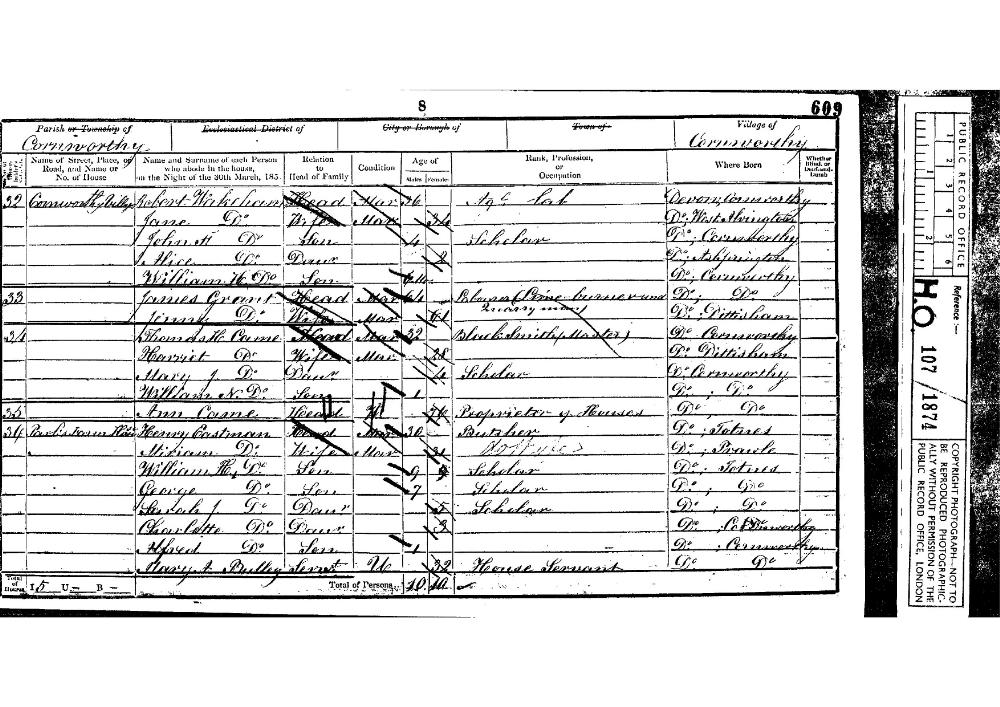 8
609
Parish or Township of
Ecclesiastical District of
City or Borough of
Town of
Village of
Cornworthy
Cornworthy
Name of Street, Place, or Road, and Name or No. of House
Name and Surname of each Person who abode in the house, on the Night of the 30th March, 185
Relation to Head of Family
Condition
Age of
Males Females
Rank, Profession, or Occupation
Where Born
Whether Blind, or Deaf-and-Dumb
32 Cornworthy Robert Head Mar 36 Ag. Lab Devon; Cornworthy
Jane Do Wife Mar 34 Do; West Alvington
John H Do Son 4 Scholar Do; Cornworthy
Alice Do Daur Do; Ashprington
William H. Do Son Do; Cornworthy
33 James Grant Head Mar 64 Do; Do
Jenny Do Wife Mar 61 Quarry man) Do; Dittisham
34 Thomas H. Came Head Mar 32 Black Smith (Master) Do Cornworthy
Harriet Do Wife Mar 28 Do Dittisham
Mary J. Do Daur 4 Scholar Do Cornworthy
William N. Do Son 1 Do; Do
35 Ann Came Head W 76 Proprietor of Houses Do; Do
36 Henry Eastman Head Mar 30 Butcher Do; Totnes
Miriam Do Wife Mar 31 Do; Prawle
William H, Do Son 9 Scholar Do; Totnes
George Do Son 7 Scholar Do; Do
Sarah J Do Daur 5 Scholar Do; Do
Charlotte Do Daur 3 Do; Cornworthy
Alfred Do Son 1 Do; Cornworthy
Mary A. Servt U 32 House Servant Do Do
Total of Houses I 5 U— B— Total of Persons 10 10
PUBLIC RECORD OFFICE
1 2 3 4 5 6
1 2
Reference:—
H.O. 107/1874
COPYRIGHT PHOTOGRAPH—NOT TO BE REPRODUCED PHOTOGRAPHIC-ALLY WITHOUT PERMISSION OF THE PUBLIC RECORD OFFICE, LONDON